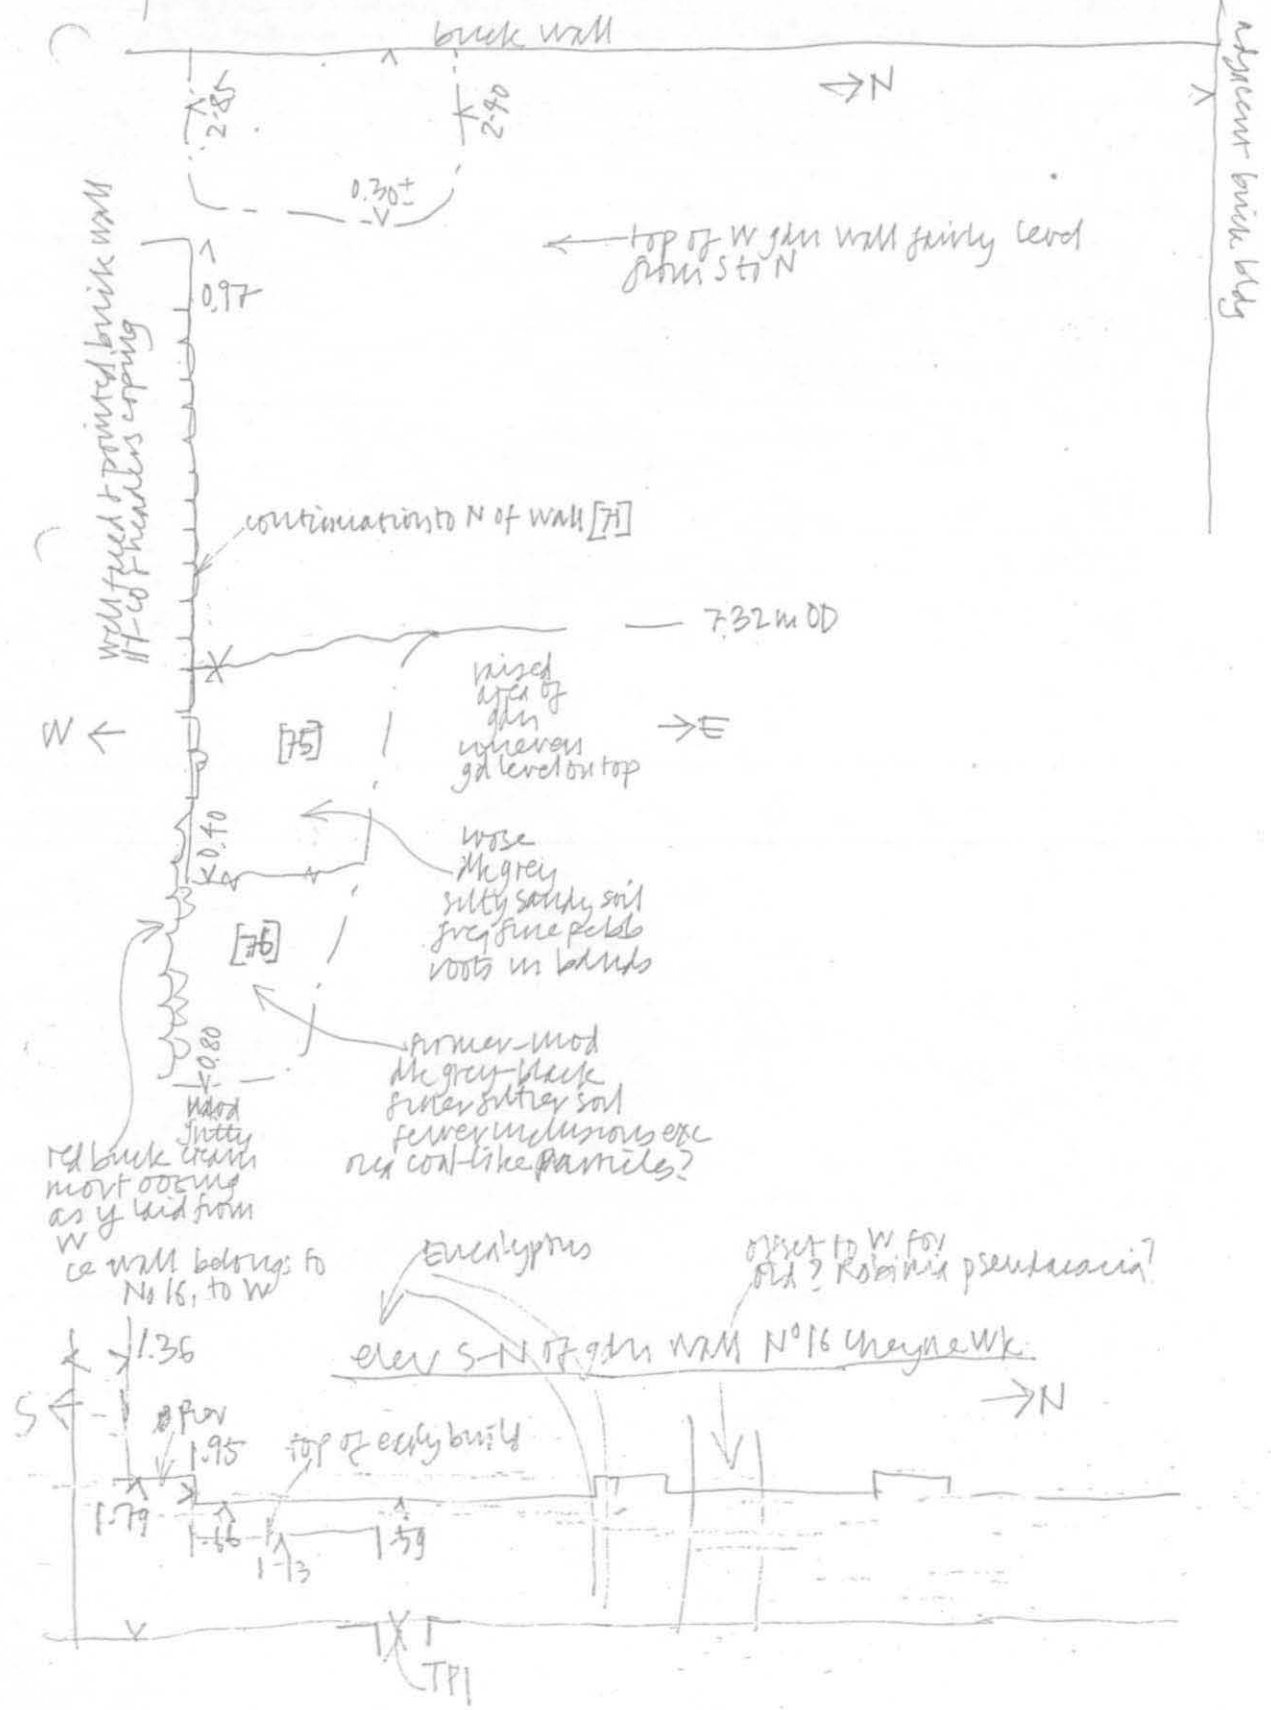 brick wall
→N
adjacent brick bldg
2.85
2.40
0.30±
← top of W gdn wall fairly level
from S to N
0.97
well fired & pointed brick wall
headers coping
continuation to N of wall [71]
7.32m OD
raised
area of
gdn
uneven
gd level on top
W ←
[75]
→E
0.40
loose
dk grey
silty sandy soil
freq fine pebb
roots in bands
[76]
0.80
firmer-mod
dk grey-black
finer siltier soil
fewer inclusions exc
coal-like particles?
red brick cream
mort oozing
as if laid from
W
ie wall belongs to
No 16, to W
Eucalyptus
offset to W for
old? Robinia pseudacacia?
elev S-N of gdn wall Nº16 Cheyne Wk
1.36
S ←
→N
pier
1.95
top of early build
1.79
1.66
1.13
1.59
TP1